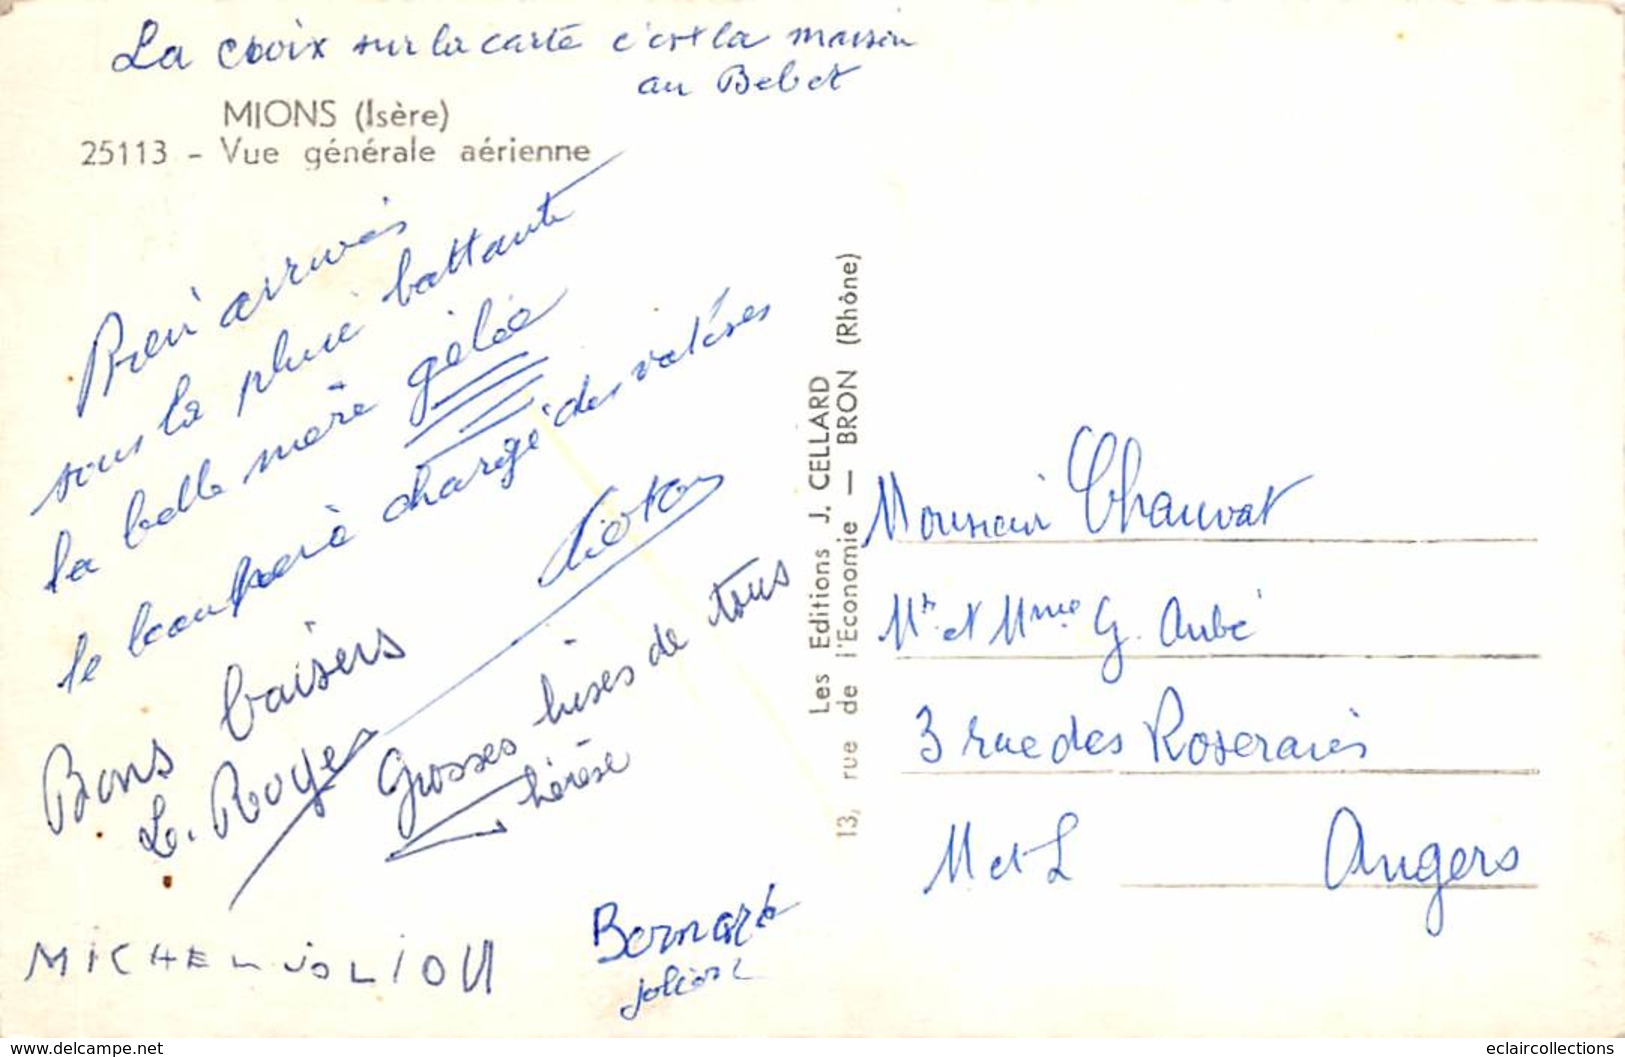 La croix sur la carte c'est la maison
au Bebet
MIONS (Isère)
25113 - Vue générale aérienne
Bien arrivés
sous la pluie battante
la belle mère gelée
le beau père à chargé des valises
Bons baisers
L. Roger
Grosses bises de tous
Thérèse
MICHEL JOLIOU
Bernard
Les Editions J. CELLARD
13, rue de l'Economie — BRON (Rhône)
Monsieur Chauvat
Mr et Mme G. Aubé
3 rue des Roseraies
M et L Angers
www.delcampe.net
eclaircollections